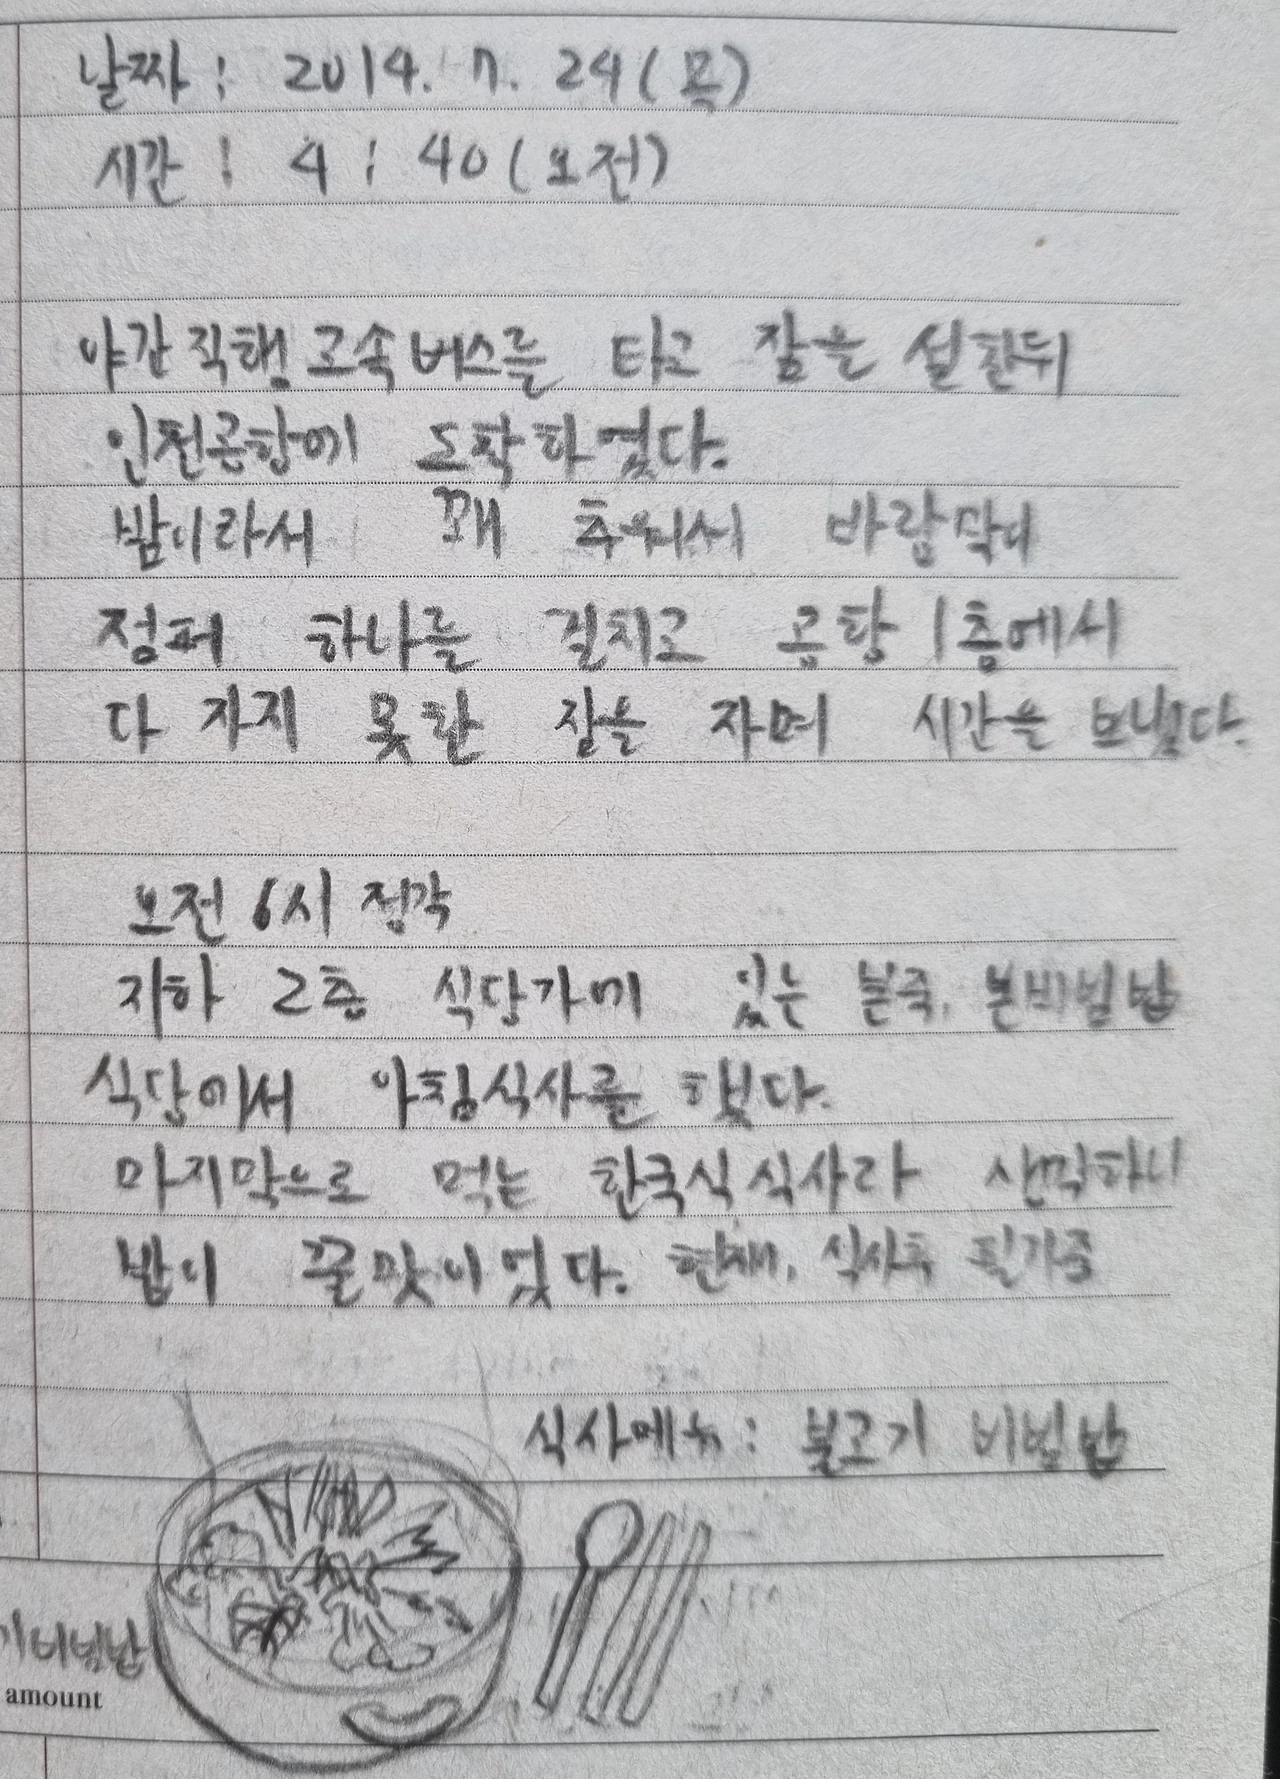 날짜 : 2014. 7. 24 (목)
시간 : 4 : 40 (오전)
야간직행 고속버스를 타고 잠을 설친뒤
인천공항에 도착하였다.
밤이라서 꽤 추워서 바람막이
점퍼 하나를 걸치고 공항 1층에서
다 자지 못한 잠을 자며 시간을 보냈다.
오전 6시 정각
지하 2층 식당가에 있는 본죽, 본비빔밥
식당에서 아침식사를 했다.
마지막으로 먹는 한국식 식사라 생각하니
밥이 꿀맛이었다. 현재, 식사후 필기중
식사메뉴 : 불고기 비빔밥
기비빔밥
amount